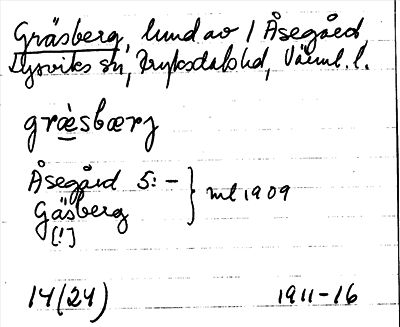 Gräsberg, lund av 1 Åsegård
Lysviks sn, Fryksdals hd, Värml. l.
græ̀sbærj
Åsegård 5:-
Gäsberg
[!]
ml 1909
14(24)
1911-16